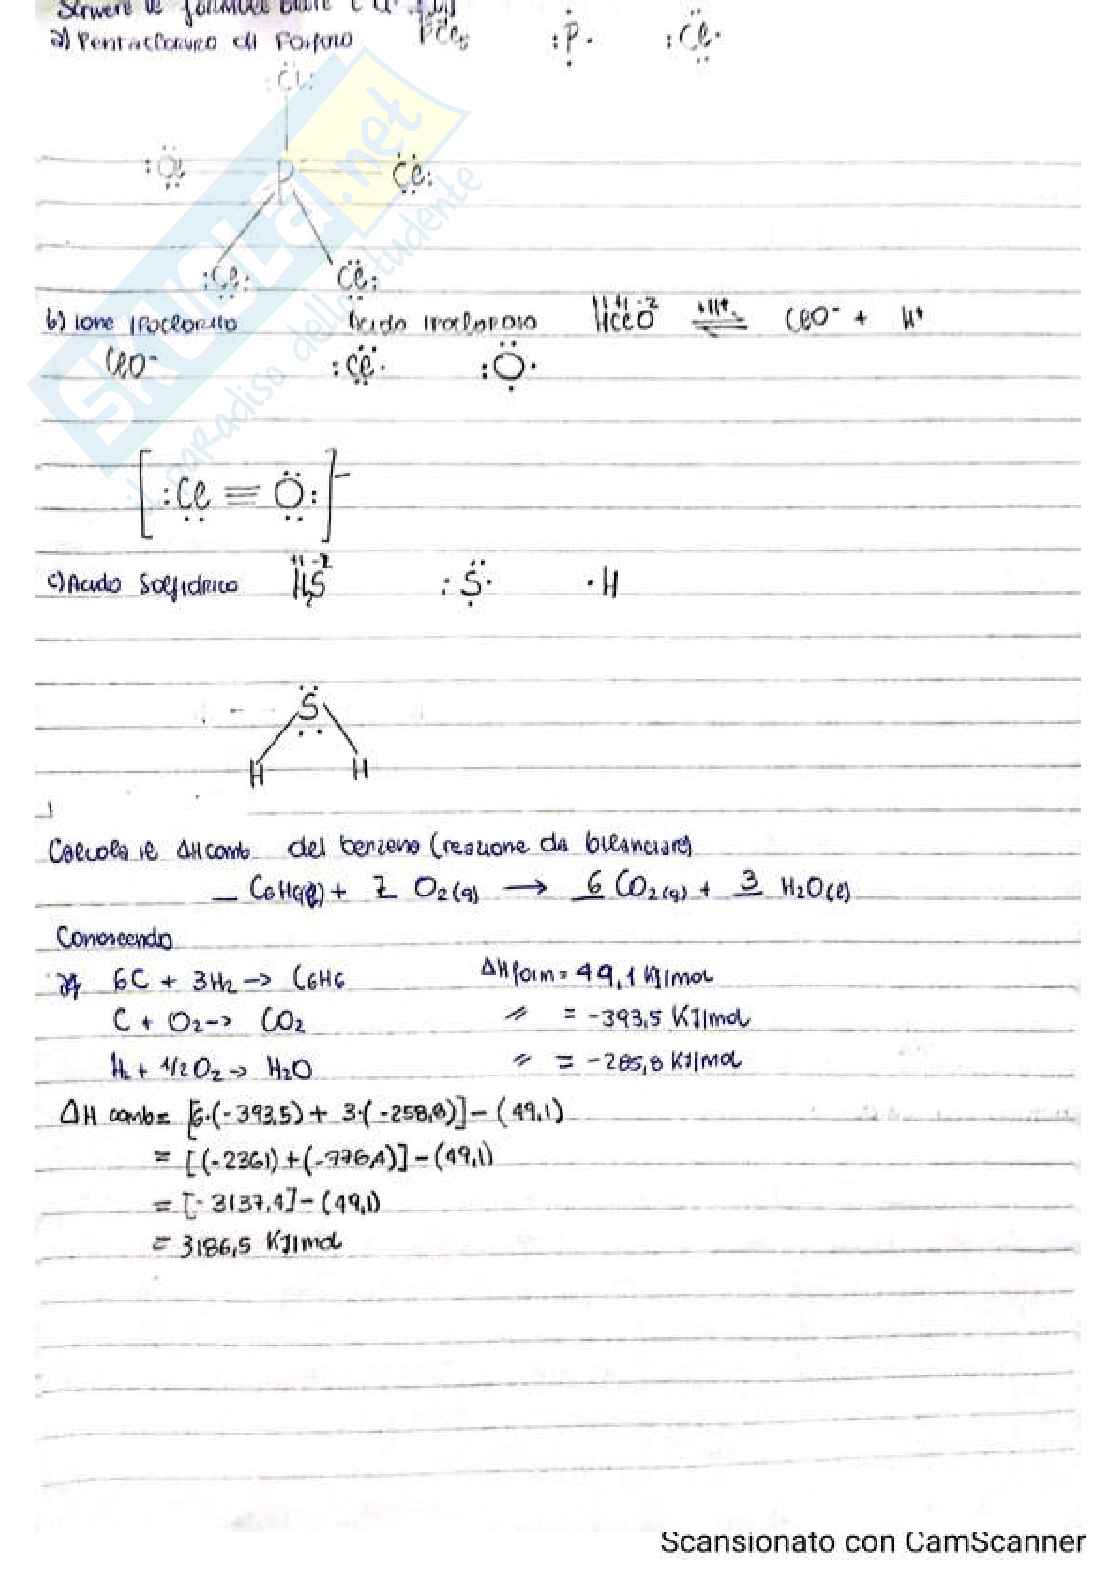 Scrivere le formule brute e di
a) Pentacloruro di Fosforo PCl5 :P· :Cl·
:Cl:
:Cl P Cl:
:Cl: Cl:
b) Ione Ipoclorito Acido Ipocloroso HClO +1 +1 -2 ⇌ ClO- + H+
ClO- :Cl· :O·
[:Cl ≡ O:]-
c) Acido Solfidrico H2S +1 -2 :S· ·H
S
H H
Calcola il ΔH comb del benzene (reazione da bilanciare)
_ C6H6(l) + 7 O2(g) → 6 CO2(g) + 3 H2O(l)
Conoscendo
6C + 3H2 → C6H6 ΔHform = 49,1 KJ/mol
C + O2 → CO2 〃 = -393,5 KJ/mol
H2 + 1/2 O2 → H2O 〃 = -285,8 KJ/mol
ΔH comb = [6·(-393,5) + 3·(-258,8)] - (49,1)
= [(-2361) + (-776,4)] - (49,1)
= [-3137,4] - (49,1)
= 3186,5 KJ/mol
SKUOLA.net
il paradiso dello studente
Scansionato con CamScanner